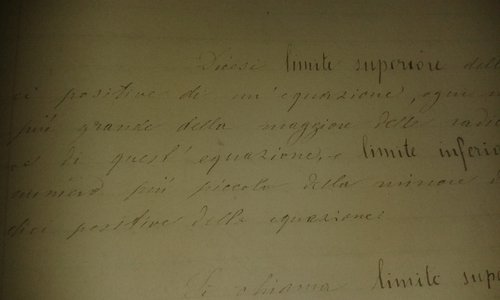 Dicesi limite superiore delle
ci positive di un'equazione, ogni
più grande della maggiore delle radi
di quest'equazione, e limite inferio
numero più piccolo della minore
dici positive della equazione.
Si chiama limite supe